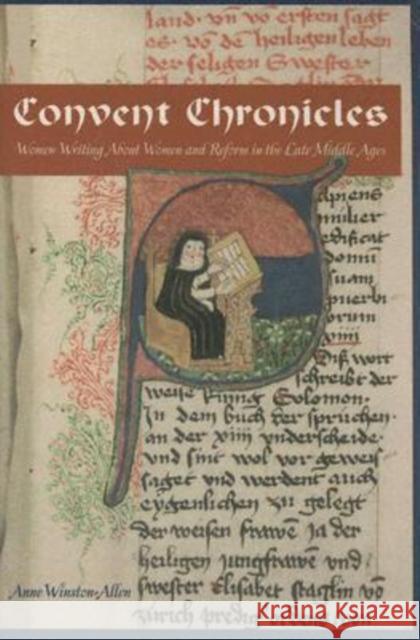 land· vn̄ vō ersten sagt
es· vō dē heiligen leben
der seligen Swester
Convent Chronicles
Women Writing About Women and Reform in the Late Middle Ages
apiens
mulier
edificat
domū
suam
puerbi
orum
xiiii
Diß wort
schreibt der
weise Kúnig Solomon·
In dem buch der spruchen·
an der xiiii vnderscheide·
vnd sint wol vor geweis
saget vnd werdent auch
eygenlichen zu gelegt
der weisen frawen ja der
heiligen jungfrawen vnd
swester Elisabet staglin vō
Anne Winston-Allen
zúrich predig